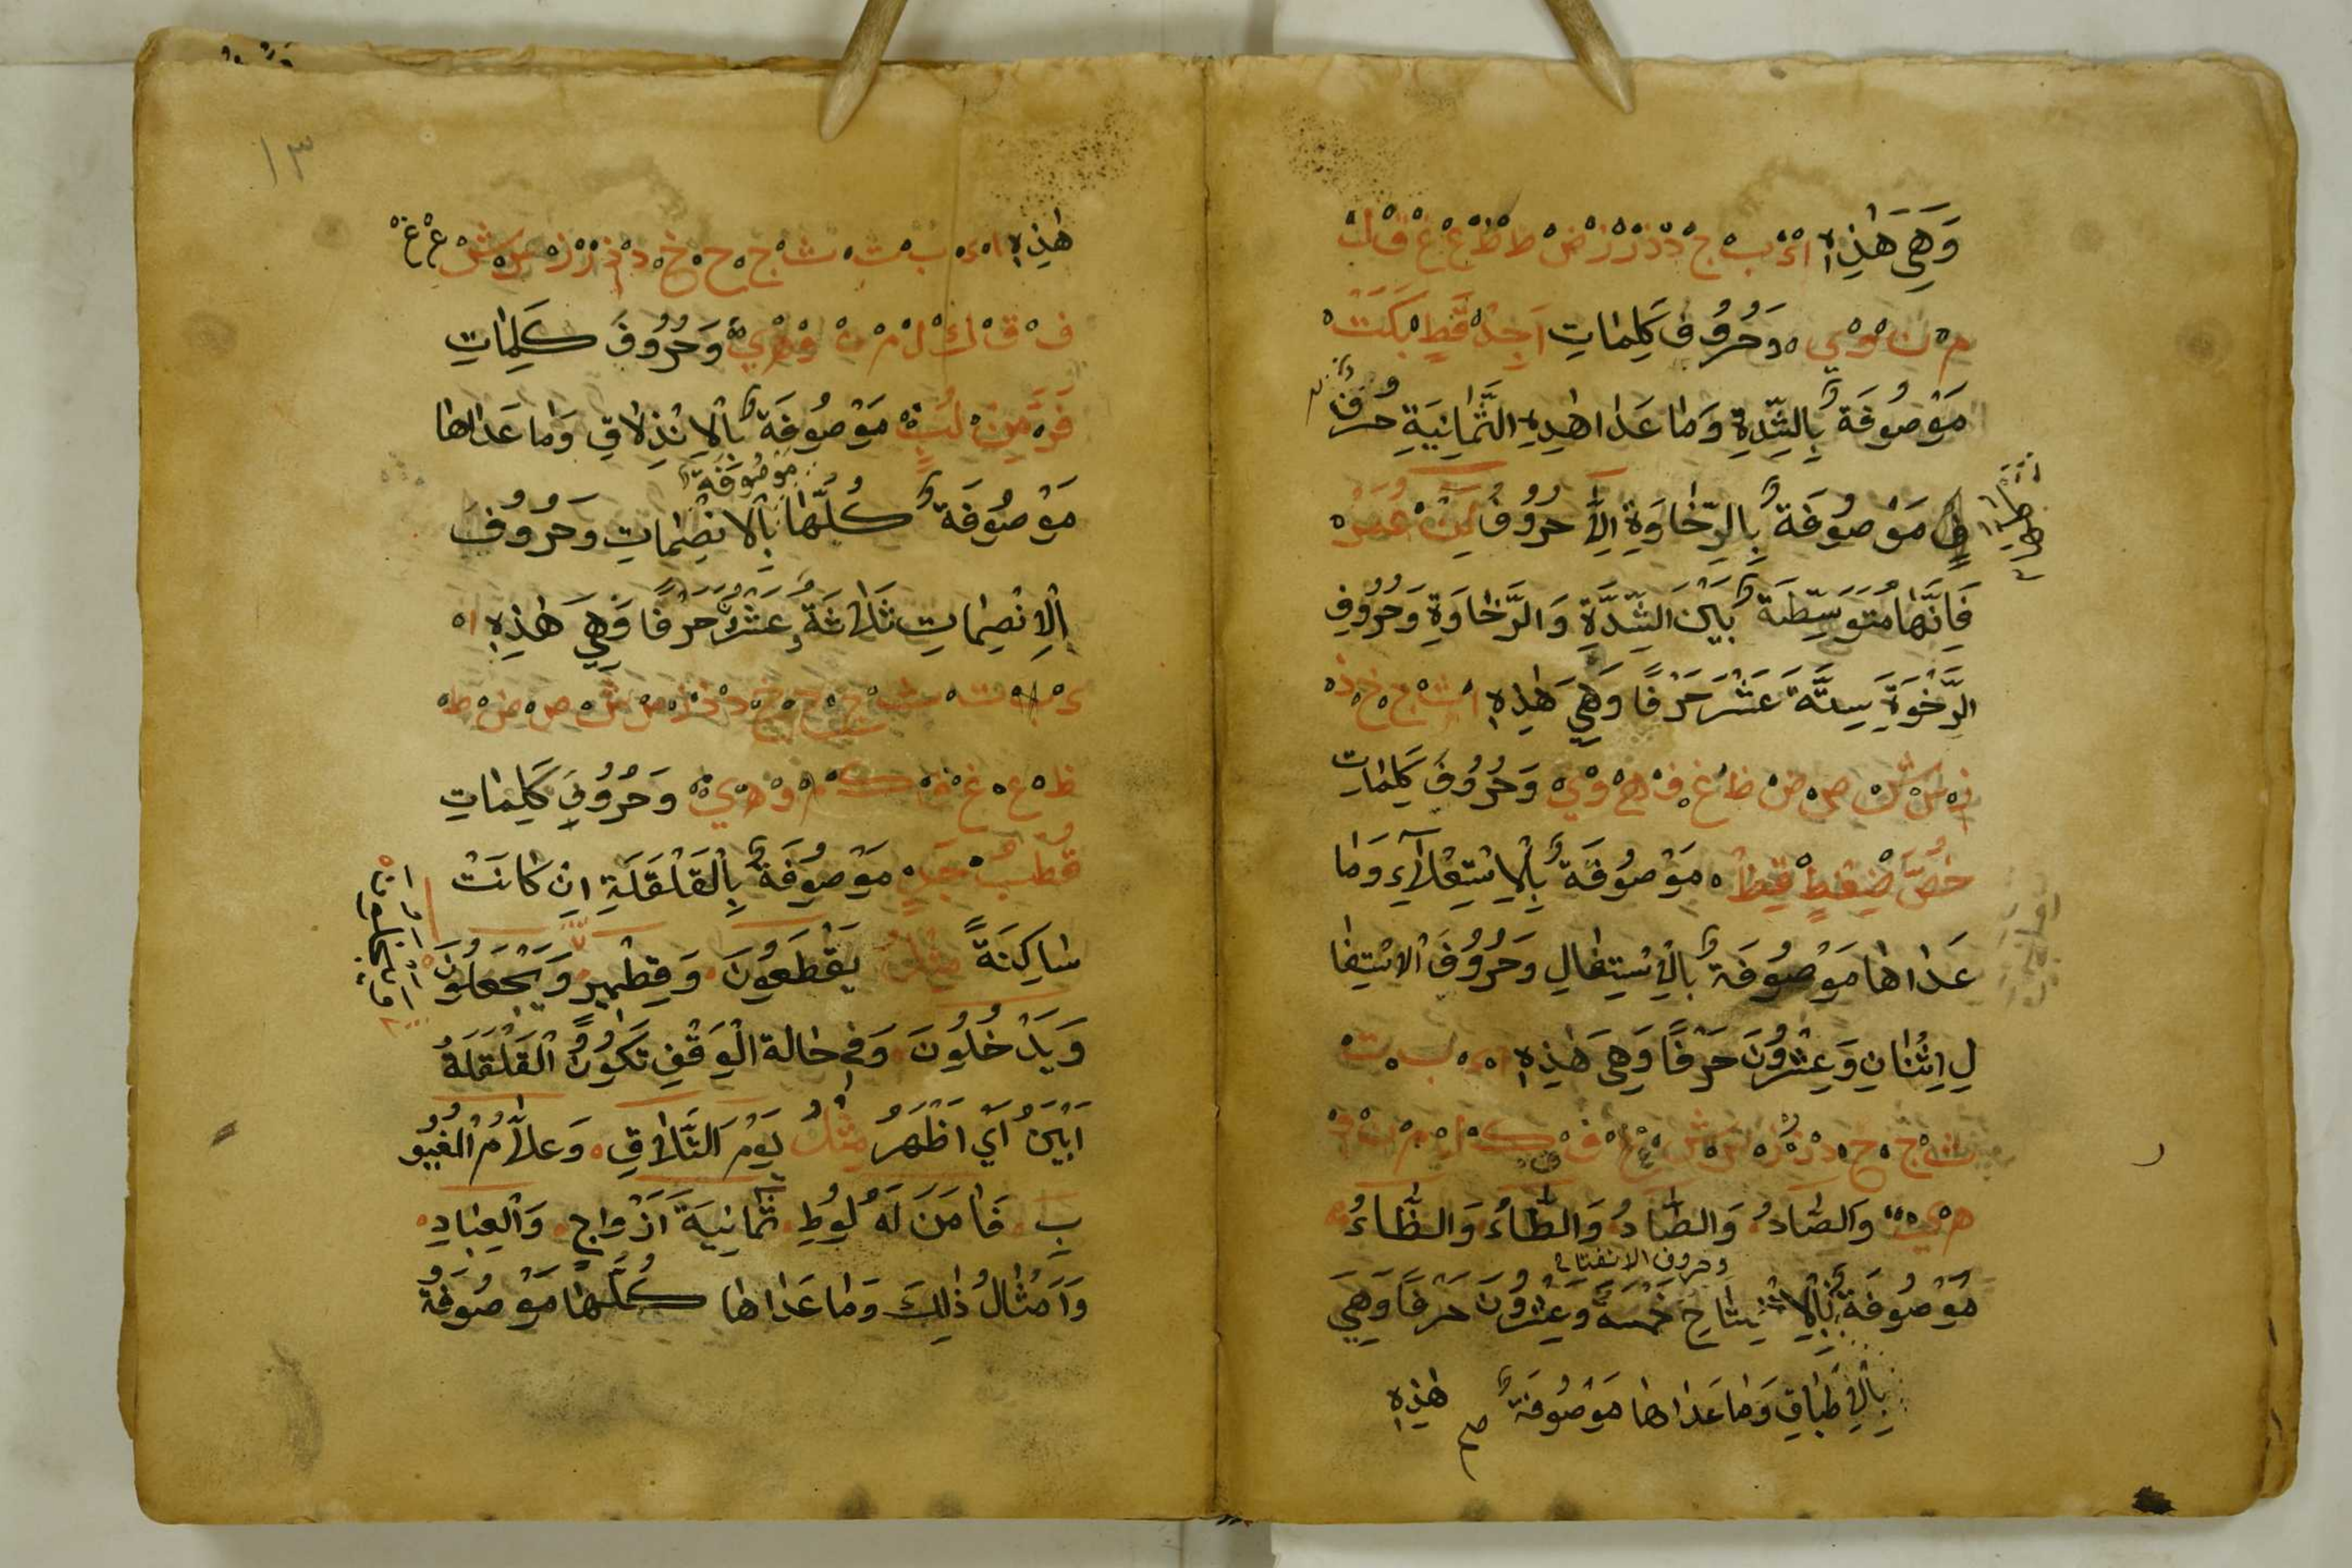 وَهِيَ هٰذِهِ ا ء ب ج د ذ ر ز ض ط ظ ع غ ق ل
م ن و ي وَحُرُوف كَلِمَاتِ اَجِدُ قَطٍ بَكَتْ
مَوْصُوفَةٌ بِالشِّدَّةِ وَمَا عَدَا هٰذِهِ الثَّمَانِيَةِ حُرُفًا
فٍ مَوْصُوفَةٌ بِالرِّخَاوَةِ اِلَّا حُرُوفُ لِنْ عُمَرْ
فَاِنَّهَا مُتَوَسِّطَةٌ بَيْنَ الشِّدَّةِ وَالرَّخَاوَةِ وَحُرُوفِ
الرَّخْوَةِ سِتَّةَ عَشَرَ حَرْفًا وَهِيَ هٰذِهِ ا ث ح خ ذ
ز س ش ص ض ظ غ ف ه و ي وَحُرُوفَ كَلِمَاتِ
خُصَّ ضَغْطٍ قِظْ مَوْصُوفَةٌ بِالْاِسْتِعْلَآءِ وَمَا
عَدَاهَا مَوْصُوفَةٌ بِالْاِسْتِفَالِ وَحُرُوفَ الْاِسْتِفَا
لِ اِثْنَانِ وَعِشْرُونَ حَرْفًا وَهِيَ هٰذِهِ ا ء ب ت
ث ج ح د ذ ر ز س ش ع ف ك ل م ن و
ه ي وَالصَّادُ وَالضَّادُ وَالطَّاءُ وَالظَّاءُ
وحروف الانفتاح
مَوْصُوفَةٌ بِالْاِنْفِتَاحِ خَمْسَةَ وَعِشْرُونَ حَرْفًا وَهِيَ
بِالْاِطْبَاقِ وَمَا عَدَاهَا مَوْصُوفَةٌ صح هٰذِهِ
١٣
هٰذِهِ ا ء ب ت ث ج ح خ د ذ ر ز س ش ع غ
ف ق ك ل م ن و ه ي وَحُرُوفَ كَلِمَاتِ
فَرَّ مِنْ لُبٍّ مَوْصُوفَةٌ بِالْاِنْذِلَاقِ وَمَا عَدَاهَا
مَوْصُوفَةٌ
مَوْصُوفَةٌ كُلُّهَا بِالْانصِمَاتِ وَحُرُوفَ
الْاِنْصِمَاتِ ثَلَاثَةُ عَشَرَ حَرْفًا وَهِيَ هٰذِهِ ا
ء ت ث ج ح خ د ذ ز س ش ص ض ط
ظ ع غ ق ك م و ه ي وَحُرُوفِ كَلِمَاتِ
قُطْبُ جَدٍ مَوْصُوفَةٌ بِالْقَلْقَلَةِ اِنْ كَانَتْ
سَاكِنَةً مِثْلُ يَقْطَعُونَ وَقِطْمِيرٍ وَيَجْعَلُونَ
وَيَدْخُلُونَ وَفِي حَالَة الْوَقْفِ تَكُونُ الْقَلْقَلَةُ
اَبْيَنُ اَيْ اَظْهَرُ مِثْلُ يَوْمَ التَّلَاقِ وَعَلَّامُ الْغُيُو
بِ فَاٰمَنَ لَهُ لُوطٌ ثَمَانِيَةَ اَزْوَاجٍ وَالْعِبَادِ
وَاَمْثَالُ ذٰلِكَ وَمَا عَدَاهَا كُلُّهَا مَوْصُوفَةٌ